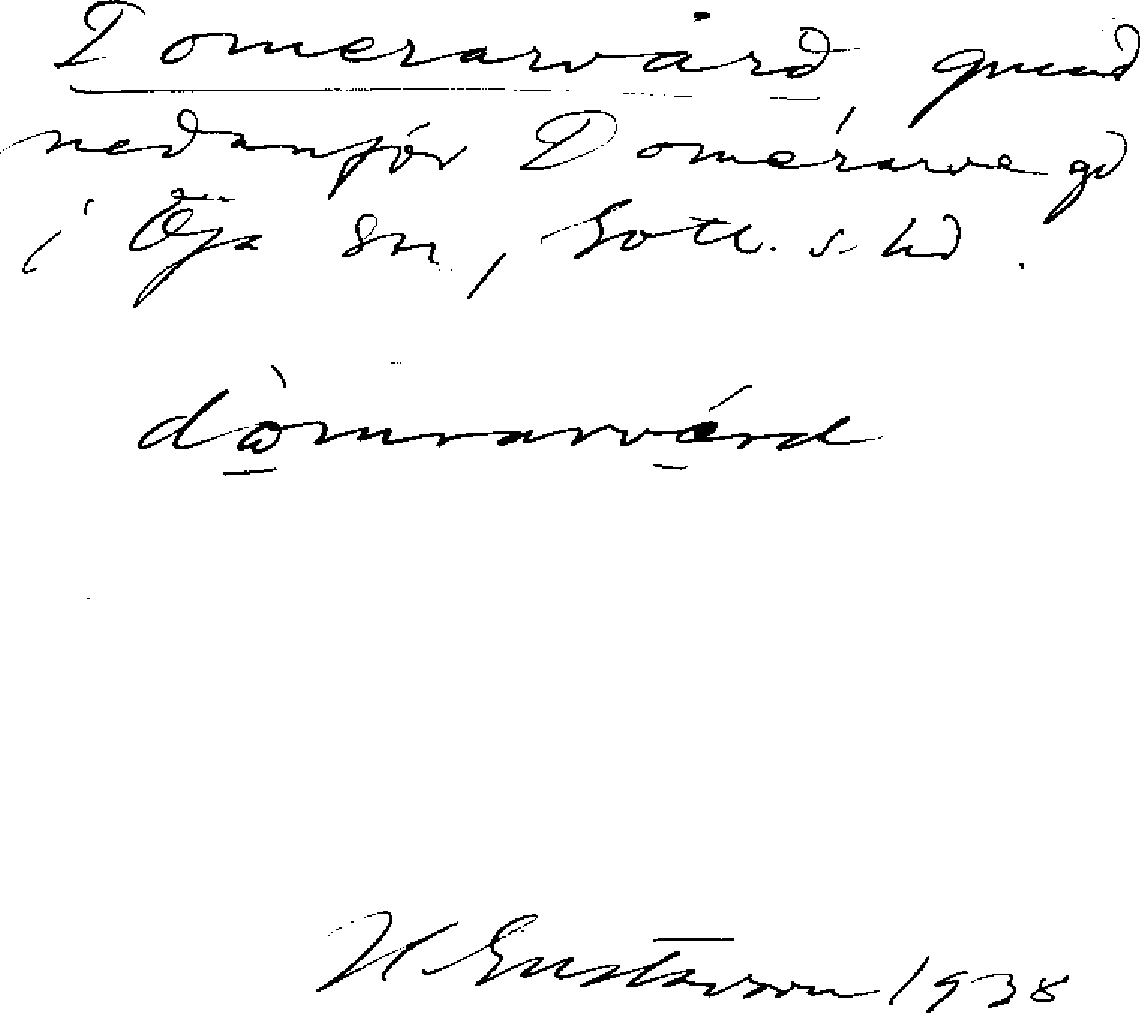 Domerarvård grund
nedanför Domerarve gd
i Öja sn, Gotl. s. hd.
dòmrarvård
H Gustavson 1938